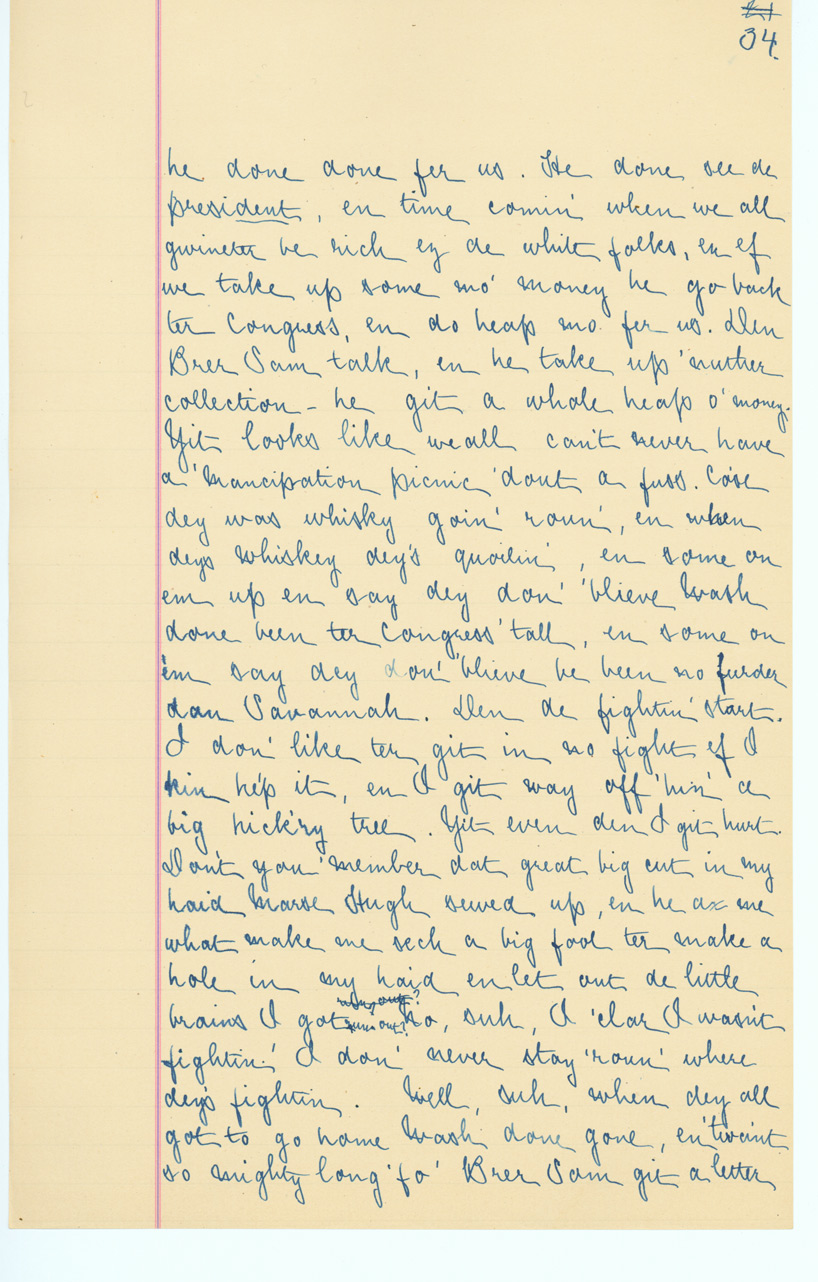 34.
he done done fer us. He done see de
president, en time comin' when we all
gwineter be rich ez de white folks, en ef
we take up some mo' money he go back
ter Congress, en do heap mo fer us. Den
Brer Sam talk, en he take up 'nuther
collection - he git a whole heap o' money.
Yit looks like we all can't never have
a 'Mancipation picnic 'dout a fuss. Co'se
dey was whisky goin' roun', en when
deys whiskey dey's quoilin', en some on
em up en say dey don' 'blieve Wash
done been ter Congress 'tall, en some on
'em say dey don' 'blieve he been no furder
dan Savannah. Den de fightin' start.
I don' like ter git in no fight ef I
kin he'p it, en I git way off 'hin' a
big hick'ry tree. Yit even den I git hurt.
Don't you 'member dat great big cut in my
haid Marse Hugh sewed up, en he ax me
what make me sech a big fool ter make a
hole in my haid en let out de little
brains I got No, suh, I 'clar I wasn't
fightin'! I don' never stay 'roun' where
dey's fightin. Well, suh, when dey all
got to go home Wash done gone, en 'twain't
so mighty long 'fo' Brer Sam git a letter